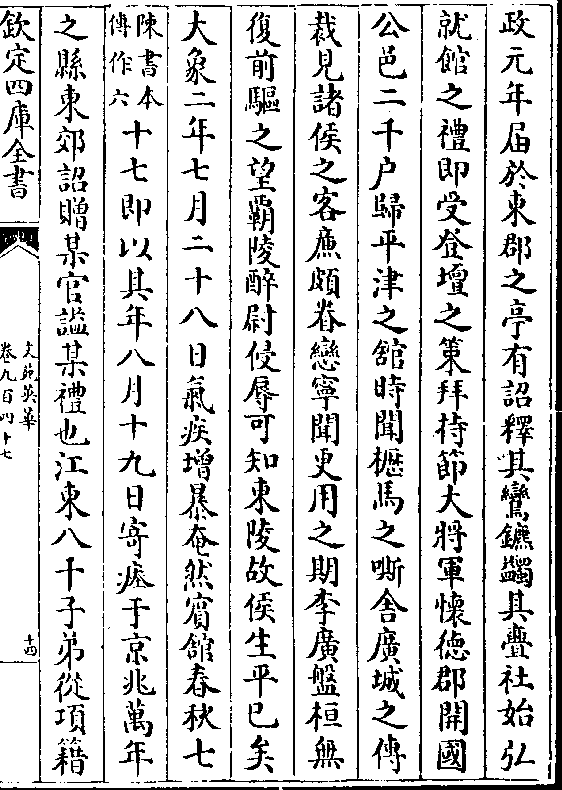 政元年届於東郡之亭有詔釋其鸞鑣蠲其釁社始弘
就館之禮即受登壇之策拜持節大將軍懷德郡開國
公邑二千户歸平津之舘時聞櫪馬之嘶舎廣城之傳
裁見諸侯之客亷頗眷戀寧聞更用之期李廣盤桓無
復前驅之望覇陵醉尉侵辱可知東陵故侯生平已矣
大象二年七月二十八日氣疾增暴奄然賔舘春秋七
陳書本傳作六十七即以其年八月十九日寄瘞于京兆萬年
之縣東郊詔贈某官諡某禮也江東八千子弟從項籍
欽定四庫全書
文苑英華
卷九百四十七
十四